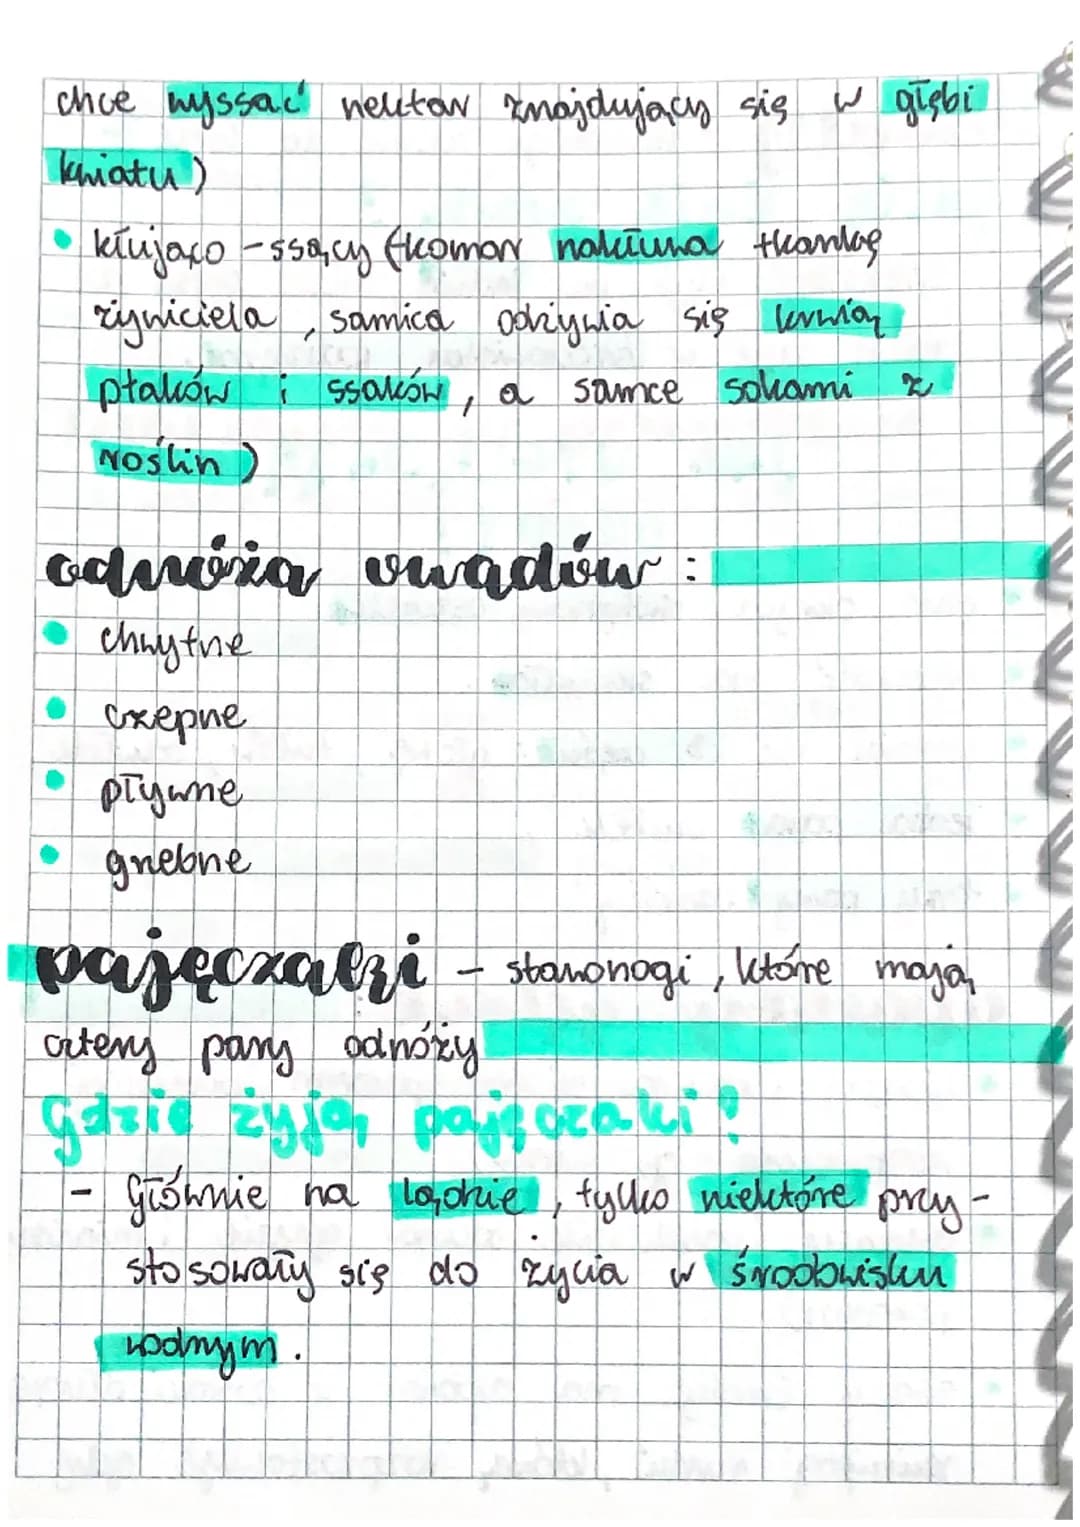 chce wyssać nektar znajdujący się w głębi
kwiatu)
• kłująco-ssący (komar nakłuwa tkankę
żywiciela, samica odżywia się krwią
ptaków i ssaków, a samce sokami z
roślin)
odnóża owadów:
• chwytne
• czepne
• pływne
• grzebne
pajęczaki - stawonogi, które mają
cztery pary odnóży
Gdzie żyją pajęczaki?
- Głównie na lądzie, tylko niektóre przy-
stosowały się do życia w środowisku
wodnym.